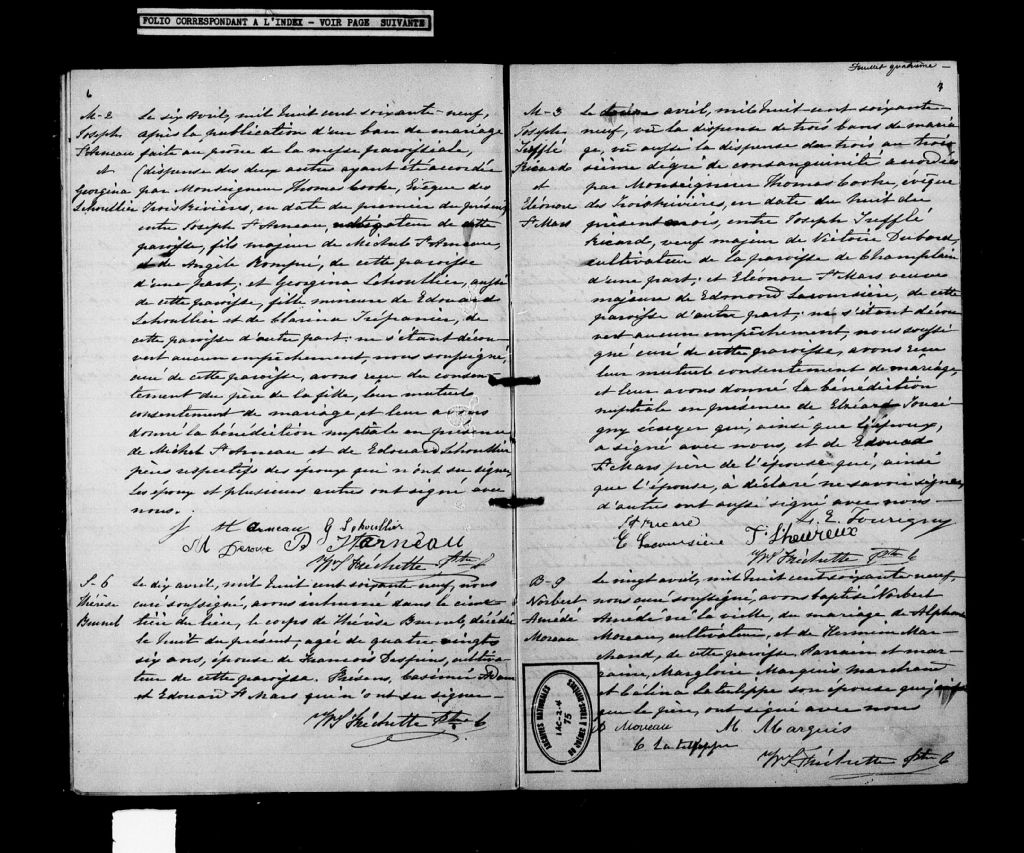 FOLIO CORRESPONDANT A L'INDEX - VOIR PAGE SUIVANTE
6
M-2
Joseph
St Arneau
et
Georgina
Lehoullier
Le six Avril, mil huit cent soixante-neuf,
après la publication d'un ban de mariage
faite au prône de la messe paroissiale,
(dispense des deux autres ayant été accordée
par Monseigneur Thomas Cooke, Evêque des
Troisrivières, en date du premier du présent
entre Joseph St Arneau, de cette
paroisse, fils majeur de Michel St Arneau,
et de Angèle Rompré, de cette paroisse
d'une part, et Georgina Lehoullier, aussi
de cette paroisse, fille mineure de Edouard
Lehoullier et de Clarina Trépanier, de
cette paroisse d'autre part: ne s'étant décou-
vert aucun empêchement, nous soussigné,
curé de cette paroisse, avons reçu du consen-
tement du père de la fille, leur mutuel
consentement de mariage et leur avons
donné la bénédiction nuptiale en présence
de Michel St Arneau et de Edouard Lehoullier
pères respectifs des époux qui n'ont su signer,
les époux et plusieurs autres ont signé avec
nous.
J St Arneau G Lehoullier
M B St Arneau
Fréchette Ptre C
S-6
Thérèse
Brunel
Le dix avril, mil huit cent soixante neuf, nous
curé soussigné, avons inhumé dans le cime-
tière du lieu, le corps de Thérèse Brunel, décédée
le huit du présent, agée de quatre vingts
six ans, épouse de François Despins, cultiva-
teur de cette paroisse. Présens, Casimir Adam
et Edouard St Mars qui n'ont su signer-
Fréchette Ptre C
Feuillet quatrième -
7
M-3
Joseph
Trefflé
Ricard
et
Eléonore
St Mars
Le avril, mil huit-cent soixante-
neuf, vu la dispense de trois bans de maria
ge, vu aussi la dispense du trois au trois
sième dégré de consanguinité accordées
par Monseigneur Thomas Cooke, évêque
des Troisrivières, en date du huit du
présent mois, entre Joseph Trefflé
Ricard, veuf majeur de Victoire Dubord,
cultivateur de la paroisse de Champlain
d'une part; et Eléonore St Mars veuve
majeure de Edmond Lacoursière, de cette
paroisse d'autre part; ne s'étant décou
vert aucun empêchement, nous soussi
gné curé de cette paroisse, avons reçu
leur mutuel consentement de mariage,
et leur avons donné la bénédiction
nuptiale en présence de Elzéar Touri-
gny écuyer qui, ainsi que l'époux,
a signé avec nous, et de Edouard
St Mars père de l'épouse qui, ainsi
que l'épouse, a déclaré ne savoir signer,
d'autres ont aussi signé avec nous-
Ricard
E Tourigny
C Lacoursière F Lheureux
Fréchette Ptre C
B-9
Norbert
Amédé
Moreau
Le vingt avril, mil huit cent soixante neuf,
nous curé soussigné, avons baptisé Norbert
Amédé né la veille, du mariage de Alphonse
Moreau, cultivateur, et de Hermine Mar-
chand, de cette paroisse. Parrain et mar-
raine, Magloire Marquis marchand
et Célina Lateluppe son épouse qui, ainsi
que le père, ont signé avec nous
Moreau M Marquis
C
Fréchette Ptre C
ARCHIVES NATIONALES
IAC-2-4
75
DU QUÉBEC À TROIS-RIVIÈRES